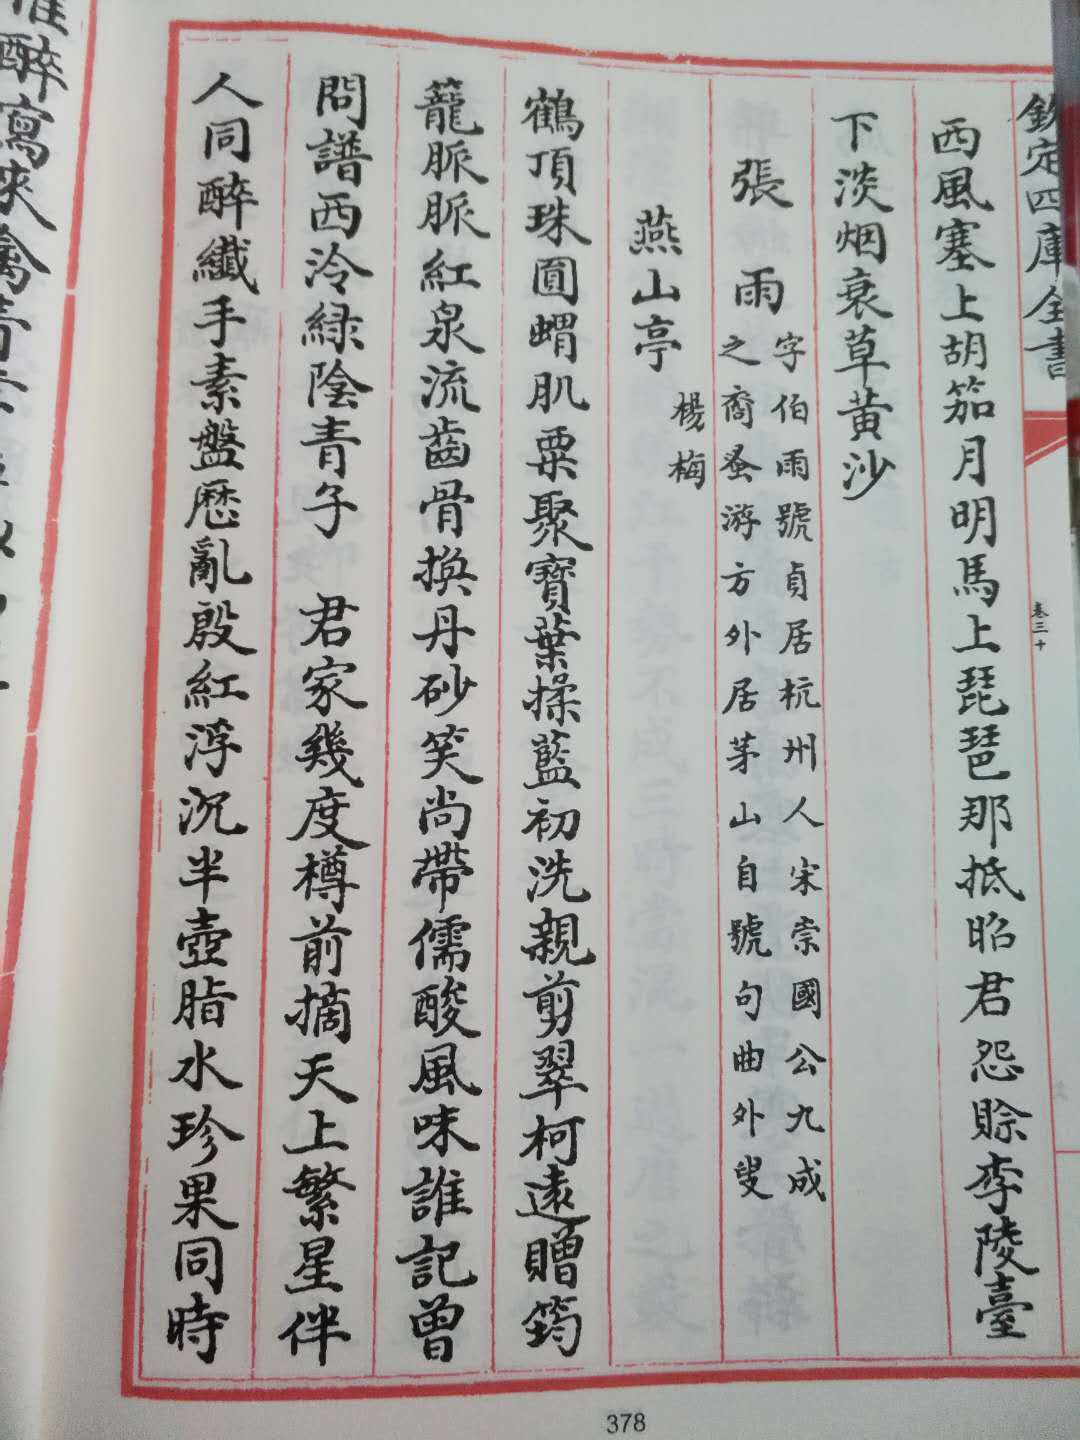 欽定四庫全書
卷三十
西風塞上胡笳月明馬上琵琶那抵昭君怨賒李陵臺
下淡烟衰草黄沙
張雨
字伯雨號貞居杭州人宋崇國公九成
之裔蚤游方外居茅山自號句曲外叟
燕山亭
楊梅
鶴頂珠圓蝟肌粟聚寶葉揉藍初洗親剪翠柯逺贈筠
籠脈脈紅泉流齒骨換丹砂笑尚帶儒酸風味誰記曾
問譜西泠緑陰青子　君家幾度樽前摘天上繁星伴
人同醉纖手素盤厯亂殷紅浮沉半壺脂水珍果同時
378